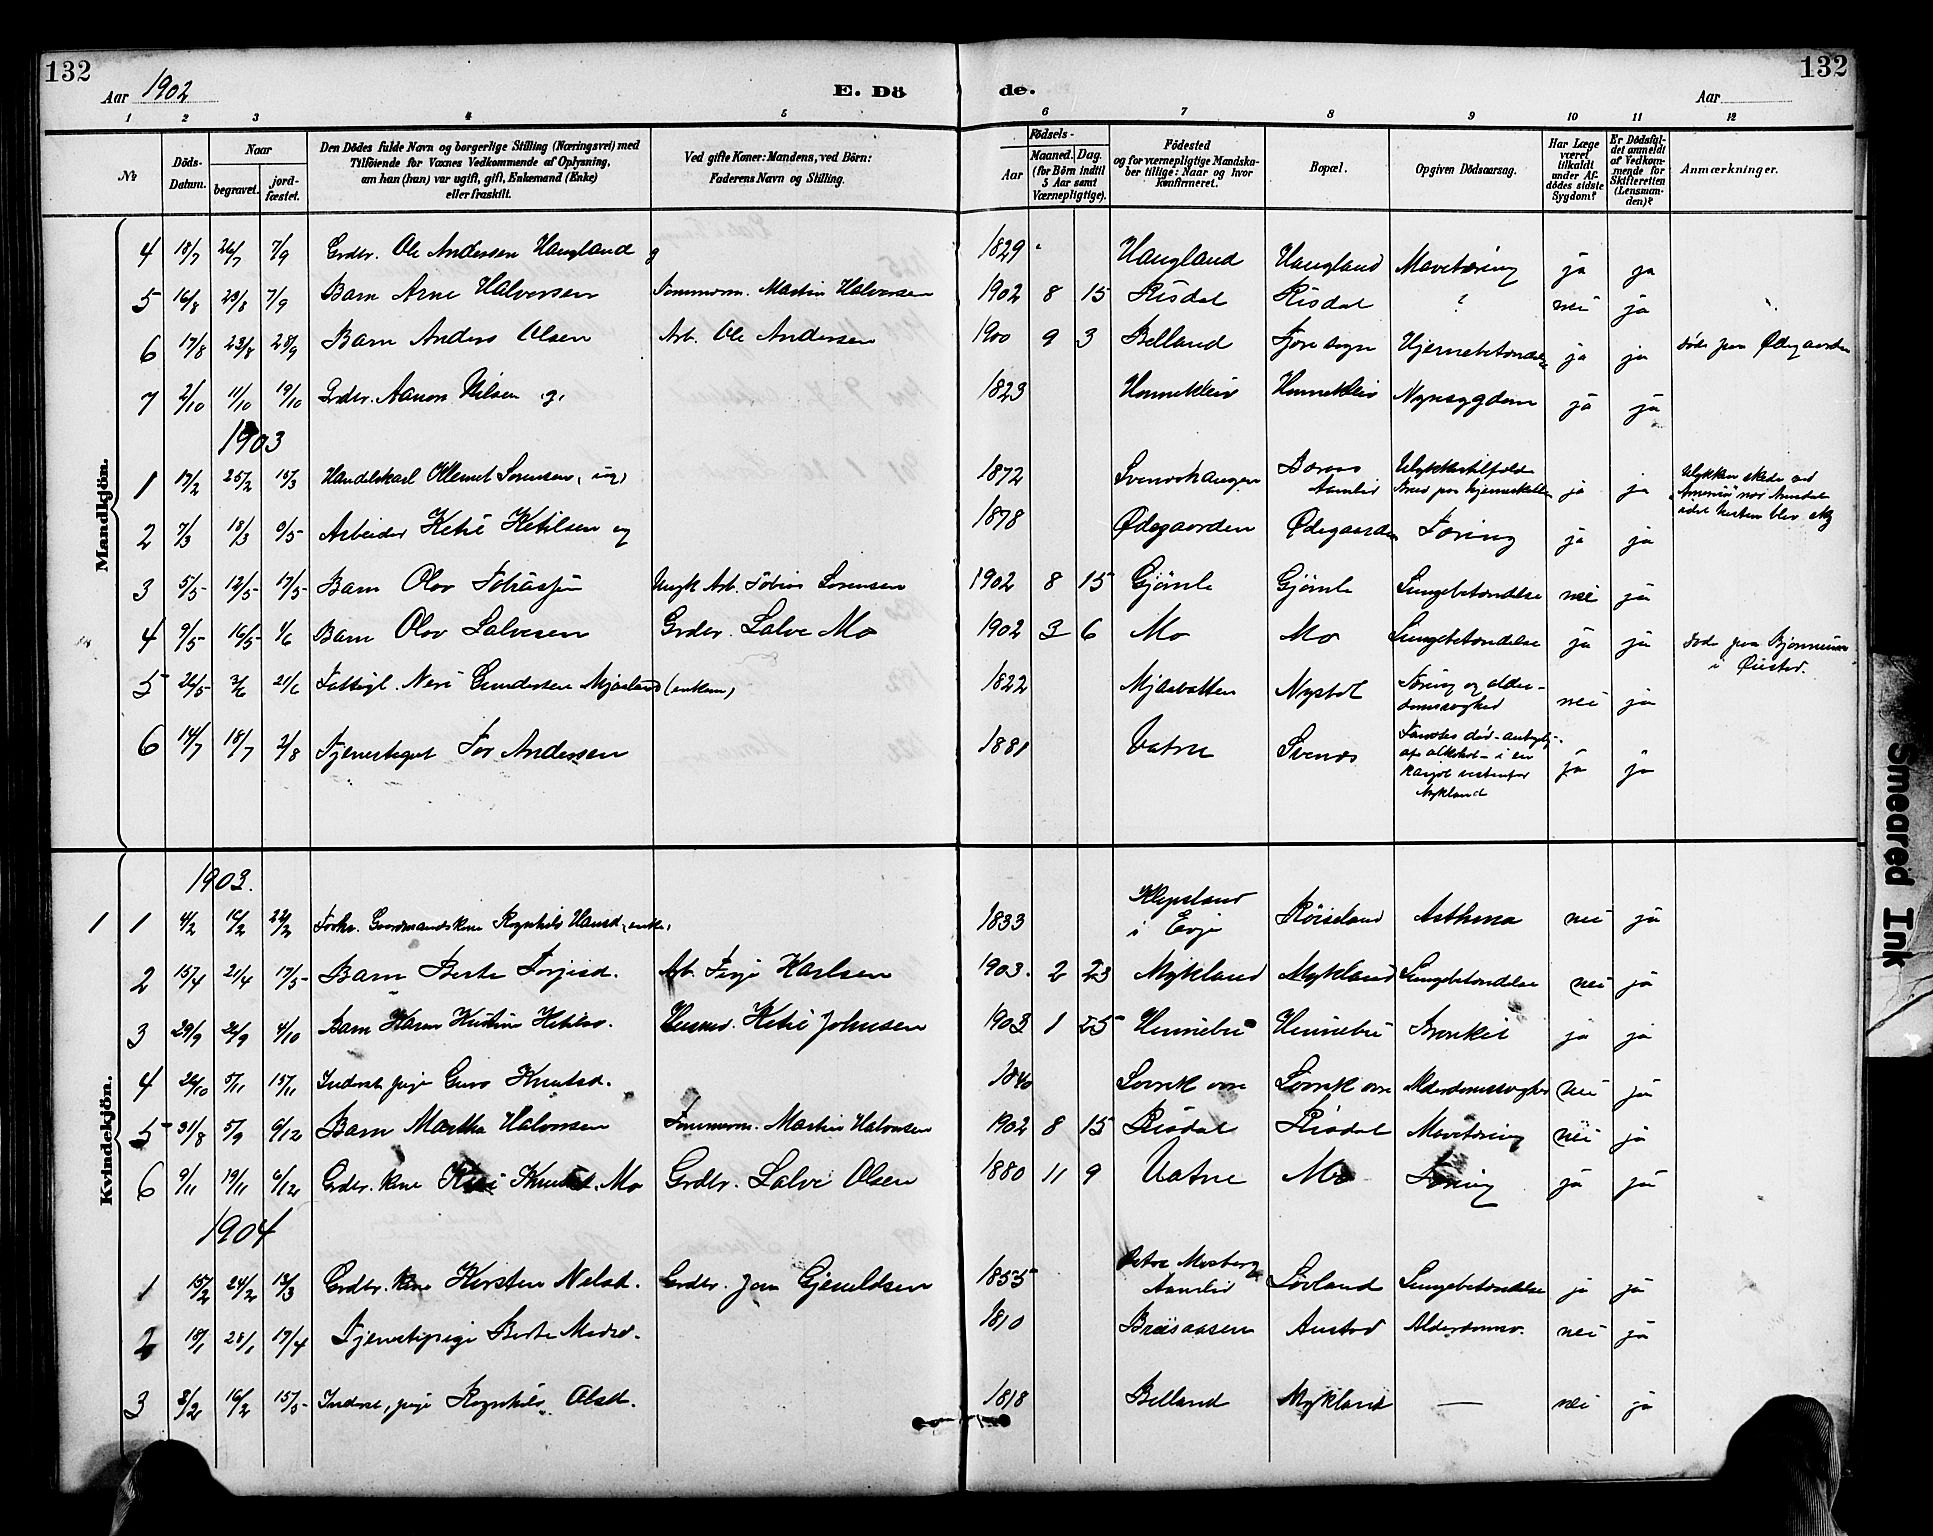 132
132
Aar 1902
E. Dö
de.
Aar
1 2 3 4 5 6 7 8 9 10 11 12
No
Döds-
Datum.
Naar
begravet.
jord-
fæstet.
Den Dödes fulde Navn og borgerlige Stilling (Næringsvei) med
Tilföiende for Voxnes Vedkommende af Oplysning,
om han (hun) var ugift, gift, Enkemand (Enke)
eller fraskilt.
Ved gifte Koner: Mandens, ved Börn:
Faderens Navn og Stilling.
Födsels-
Aar
Maaned. Dag.
(for Börn indtil
5 Aar samt
Værnepligtige).
Födested
og for værnepligtige Mandska-
ber tillige: Naar og hvor
Konfirmeret.
Bopæl.
Opgiven Dödsaarsag.
Har Læge
været
tilkaldt
under Af-
dödes sidste
Sygdom?
Er Dödsfal-
det anmeldt
af Vedkom-
mende for
Skifteretten
(Lensman-
den)?
Anmærkninger.
Mandkjön.
4 18/7 26/7 7/9 Grdbr. Ole Andersen Haugland g 1829 Haugland Haugland Mavetæring ja ja
5 16/8 23/8 7/9 Barn Arne Halvorsen Tømmerm. Martin Halvorsen 1902 8 15 Risdal Risdal ? nei ja
6 17/8 23/8 28/9 Barn Anders Olsen Arb. Ole Andersen 1900 9 3 Belland Fjore sogn Hjernebetændelse ja ja døde paa Ødegaarden
7 2/10 11/10 19/10 Grdbr. Aanon Nilsen g. 1823 Honnekleiv Honnekleiv Nyresygdom ja ja
1903
1 17/2 25/2 15/3 Handelskarl Sørensen, (ug) 1872 Svenoshaugen Aamlid Ulykkestilfælde paa ja ja Ulykken skede ved
2 7/3 18/3 9/5 Arbeider Ketil Ketilsen ug 1878 Ødegaarden Ødegaarden Tæring ja ja
3 5/5 12/5 17/5 Barn Olav Tobiassen Ungk. Arb. Tobias Sørensen 1902 8 15 Gjømle Gjømle Lungebetændelse nei ja
4 9/5 16/5 1/6 Barn Olav Salvesen Grdbr. Salve Mo 1902 3 6 Mo Mo Lungebetændelse ja ja døde paa
i Øiestad.
5 26/5 3/6 21/6 Fattigl. Neri Gundersen Mjaaland (enkem) 1822 Mjaavatten Nystøl Tæring og alder-
domssvaghed nei ja
6 14/7 18/7 2/8 Tjenestegut Tor Andersen 1881 Vatne Svenøs Fandtes død
af alkohol i en
Mykland ja ja
Kvindekjön.
1903.
1 1 4/2 10/2 22/2 Forhv. Gaardmandskone Ragnhild Hansd. enke, 1833 Klepsland
i Evje Røiseland Asthma nei ja
2 15/4 21/4 17/5 Barn Berte Terjesd. Arb. Terje Karlsen 1903. 2 23 Mykland Mykland Lungebetændelse nei ja
3 29/9 26/9 4/10 Barn Karen Kristine Ketilsd. Husmd. Ketil Johnsen 1903 1 25 Hinnebu Hinnebu Bronkit ja ja
4 26/10 5/11 15/11 Inderst pige Guro Knutsd. 1840 Alderdomssvaghed nei ja
5 31/8 5/9 6/12 Barn Martha Halvorsen Tømmerm. Martin Halvorsen 1902 8 15 Risdal Risdal Mavetæring nei ja
6 9/11 19/11 6/12 Grdbr. kone Kari Knutsd. Mo Grdbr. Salve Olsen 1880 11 9 Vatne Mo Tæring ja ja
1904
1 15/2 24/2 13/3 Grdbr. kone Kirsten Nelsd. Grdbr. Jens Gjeruldsen 1855 Aamlid Løvland Lungebetændelse ja ja
2 18/1 28/1 17/4 Tjenestepige Berte Madsd. 1810 Austad Alderdomssv. nei ja
3 3/2 16/2 15/5 Inderst, pige Ragnhild Olsd. 1818 Belland Mykland — nei ja
Smeared Ink